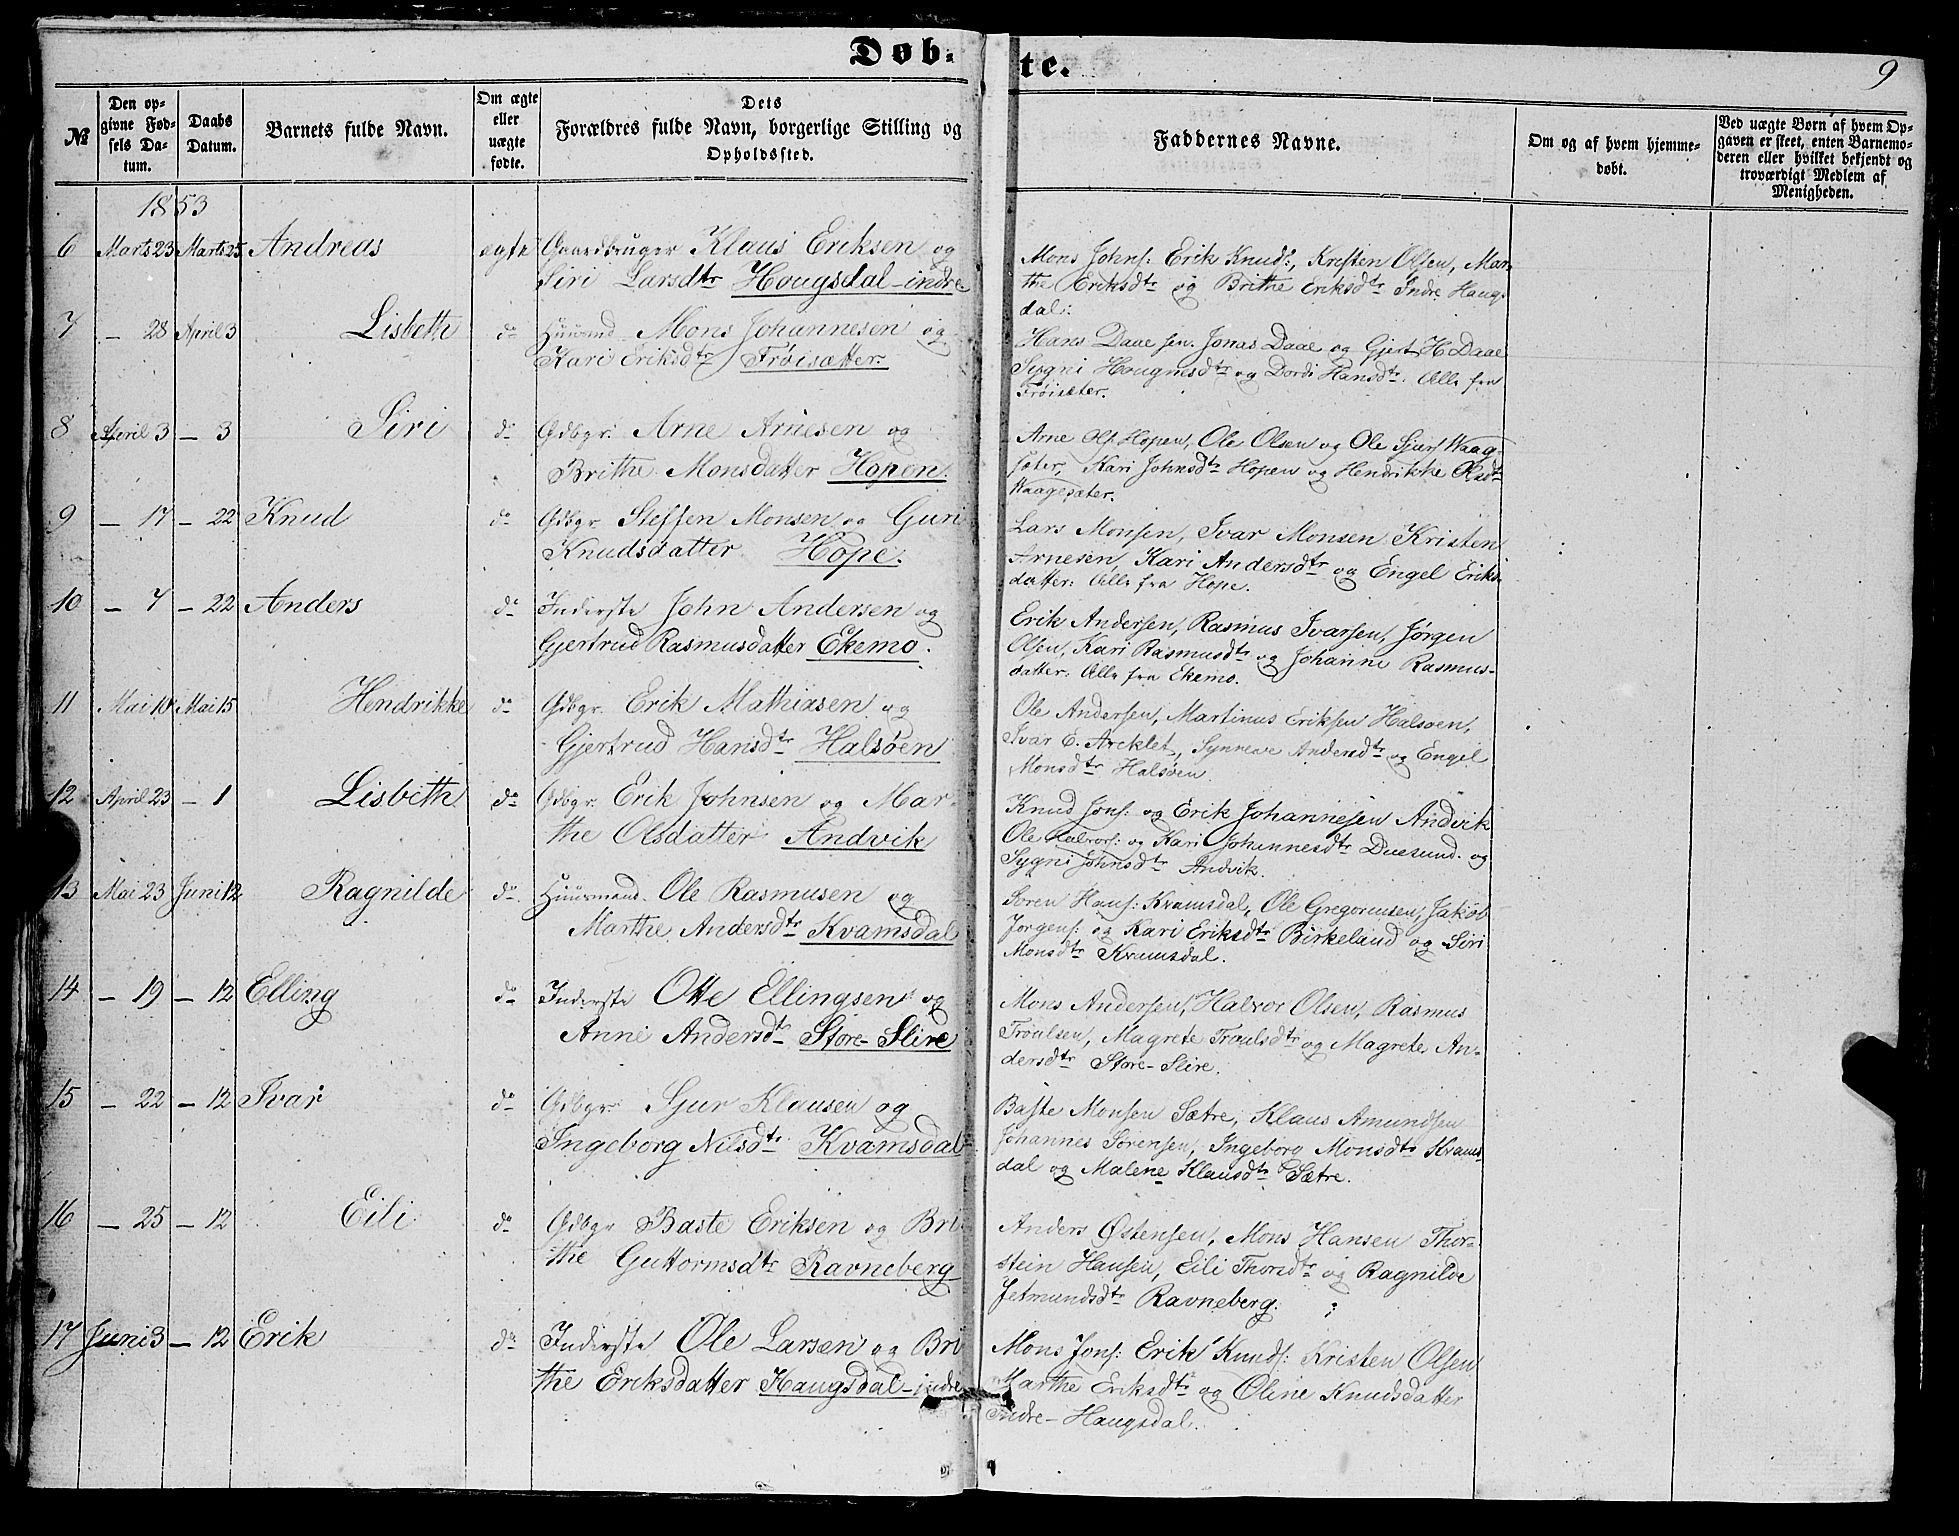 Døb-te.
9
№
Den opgivne Fødsels Datum.
Daabs Datum.
Barnets fulde Navn.
Om ægte eller uægte fødte.
Dets Forældres fulde Navn, borgerlige Stilling og Opholdssted.
Faddernes Navne.
Om og af hvem hjemmedøbt.
Ved uægte Børn af hvem Opgaven er skeet, enten Barnemoderen eller hvilket bekjendt og troværdigt Medlem af Menigheden.
1853
6 Marts 23 Marts 25 Andreas ægte Gaardbruger Klaus Eriksen og
Siri Larsdtr Hougsdal-indre
Mons Johns: Erik Knuds:, Kristen Olsen, Mar-
the Eriksdtr og Brithe Eriksdtr Indre Haugs-
dal.
7 — 28 April 3 Lisbeth do Huusmd Mons Johannesen og
Kari Eriksdtr Frøisætter
Hans Daae sen. Jonas Daae og Gjert H. Daae
Sygni Hougnesdtr og Dordi Hansdtr. Alle fra
Frøisæter.
8 April 3 — 3 Siri do Gdbgr. Arne Arnesen og
Brithe Monsdatter Hopen
Arne Ols Hopen, Ole Olsen og Ole Sjurs Waag-
sæter, Kari Johnsdtr Hopen og Hendrikke Olsdtr
Waagesæter.
9 — 17 — 22 Knud do Gdbgr Steffen Monsen og Guri
Knudsdatter Hope.
Lars Monsen, Ivar Monsen Kristen
Arnesen, Kari Andersdtr og Engel Eriks-
datter: Alle fra Hope.
10 — 7 — 22 Anders do Inderste John Andersen og
Gjertrud Rasmusdatter Ekemo.
Erik Andersen, Rasmus Ivarsen, Jørgen
Olsen, Kari Rasmusdtr og Johanne Rasmus-
datter: Alle fra Ekemo.
11 Mai 10 Mai 15 Hendrikke do Gdbgr. Erik Mathiasen og
Gjertrud Hansdtr Halsøen
Ole Andersen, Martinus Eriksen Halsøen,
Ivar E. Arcklet, Synneve Andersdtr og Engel
Monsdtr Halsøen.
12 April 23 — 1 Lisbeth do Gdbgr. Erik Johnsen og Mar-
the Olsdatter Andvik
Knud Jons: og Erik Johannesen Andvik
Ole Halvors: og Kari Johannesdtr Duesund. og
Sygni Johnsdtr Andvik.
13 Mai 23 Juni 12 Ragnilde do Huusmand Ole Rasmusen og
Marthe Andersdtr Kvamsdal
Søren Hans: Kvamsdal, Ole Gregoriusen, Jakob
Jørgens: og Kari Eriksdtr Birkeland og Siri
Monsdtr Kvamsdal.
14 — 19 — 12 Elling do Inderste Otte Ellingsen og
Anne Andersdtr Store-Slire
Mons Andersen, Halvor Olsen, Rasmus
Troulsen, Magrete Troulsdtr og Magrete An-
dersdtr Store-Slire.
15 — 22 — 12 Ivar do Gdbgr Sjur Klausen og
Ingeborg Nilsdtr Kvamsdal
Baste Monsen Sætre, Klaus Amundsen
Johannes Sørensen, Ingeborg Monsdtr Kvams-
dal og Malene Klausdtr Sætre.
16 — 25 — 12 Eili do Gdbgr Baste Eriksen og Bri-
the Guttormsdtr Ravneberg
Anders Østensen, Mons Hansen Thor-
stein Hansen, Eili Thorsdtr og Ragnilde
Jetmundsdtr Ravneberg.
17 Juni 3 — 12 Erik do Inderste Ole Larsen og Bri
the Eriksdatter Haugsdal-indre
Mons Jons: Erik Knuds: Kristen Olsen
Marthe Eriksdtr og Oline Knudsdatter
Indre-Haugsdal.